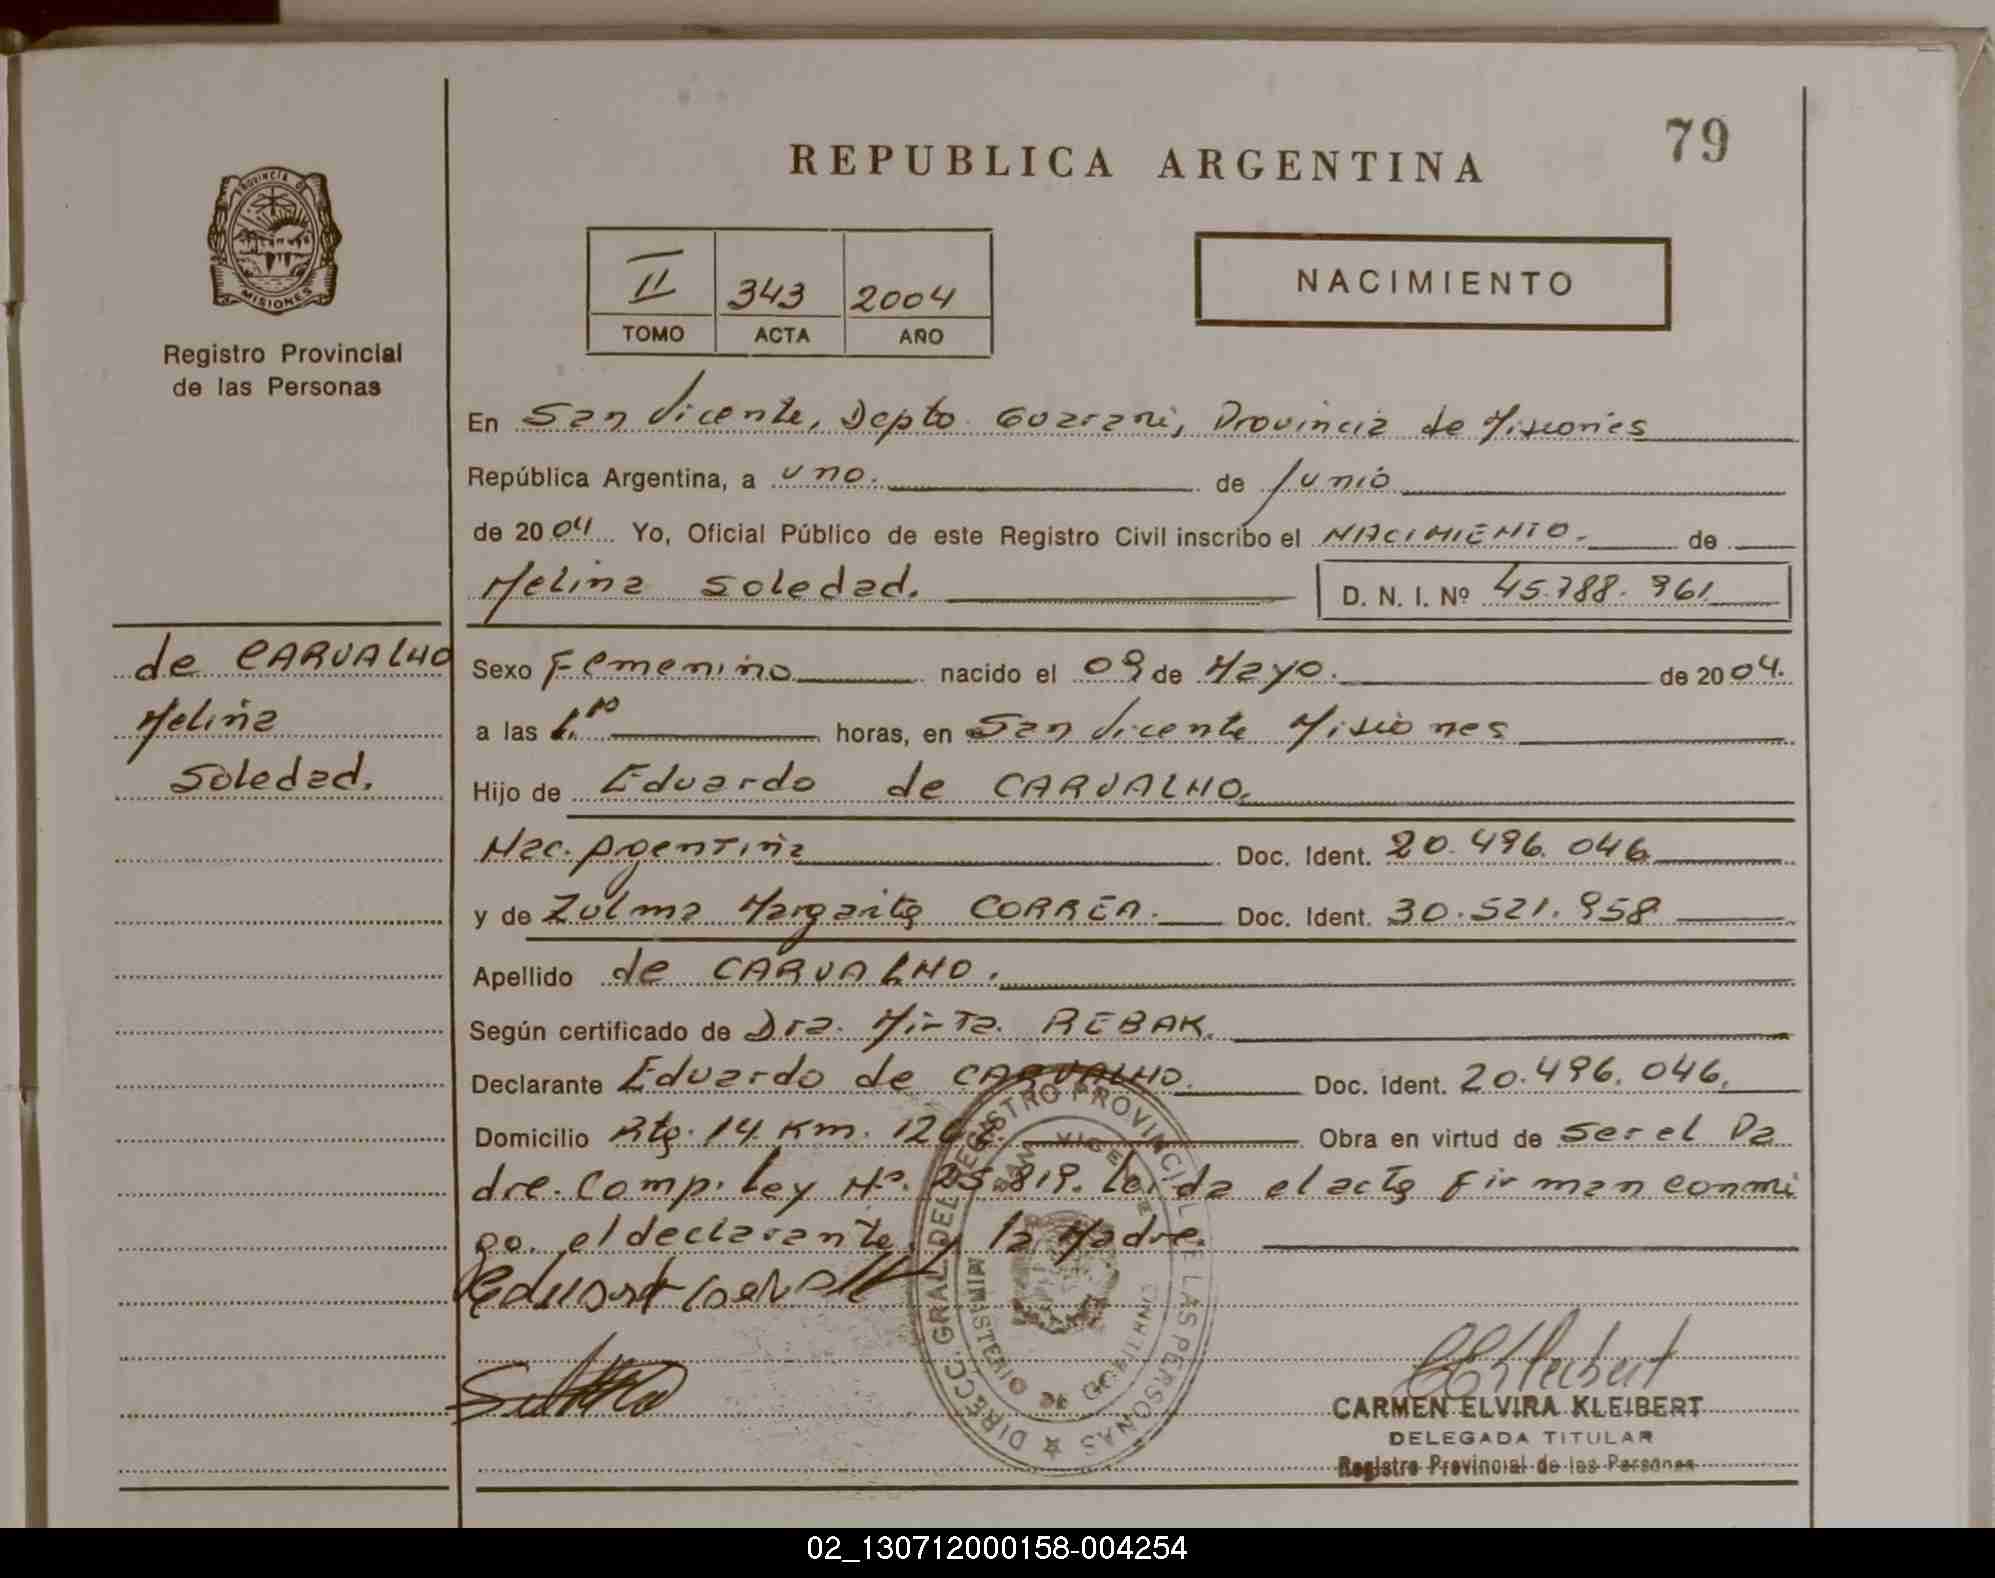 79
REPUBLICA ARGENTINA
PROVINCIA D
MISIONES
Registro Provincial
de las Personas
II 343 2004
TOMO ACTA AÑO
NACIMIENTO
En San Vicente, Depto Guarani, Provincia de Misiones
República Argentina, a uno. de Junio
de 2004 Yo, Oficial Público de este Registro Civil inscribo el NACIMIENTO. de
Melina Soledad. D. N. I. Nº 45.788.961
de CARVALHO
Melina
Soledad.
Sexo Femenino nacido el 09 de Mayo. de 2004.
a las horas, en San Vicente Misiones
Hijo de Eduardo de CARVALHO.
Nac. Argentina Doc. Ident. 20.496.046
y de Zulma Margarita CORREA. Doc. Ident. 30.521.958
Apellido de CARVALHO.
Según certificado de Dra. Mirta. REBAK.
Declarante Eduardo de CARVALHO. Doc. Ident. 20.496.046.
Domicilio Rta. 14 Km. Obra en virtud de ser el Pa
dre. Comp. Ley Nº. 25.819. leida el acta firman conmi
go. el declarante y la Madre.
DIRECC. GRAL. DEL REGISTRO PROVINCIAL DE LAS PERSONAS
MINISTERIO DE GOBIERNO
CARMEN ELVIRA KLEIBERT
DELEGADA TITULAR
Registro Provincial de las Personas
02_130712000158-004254